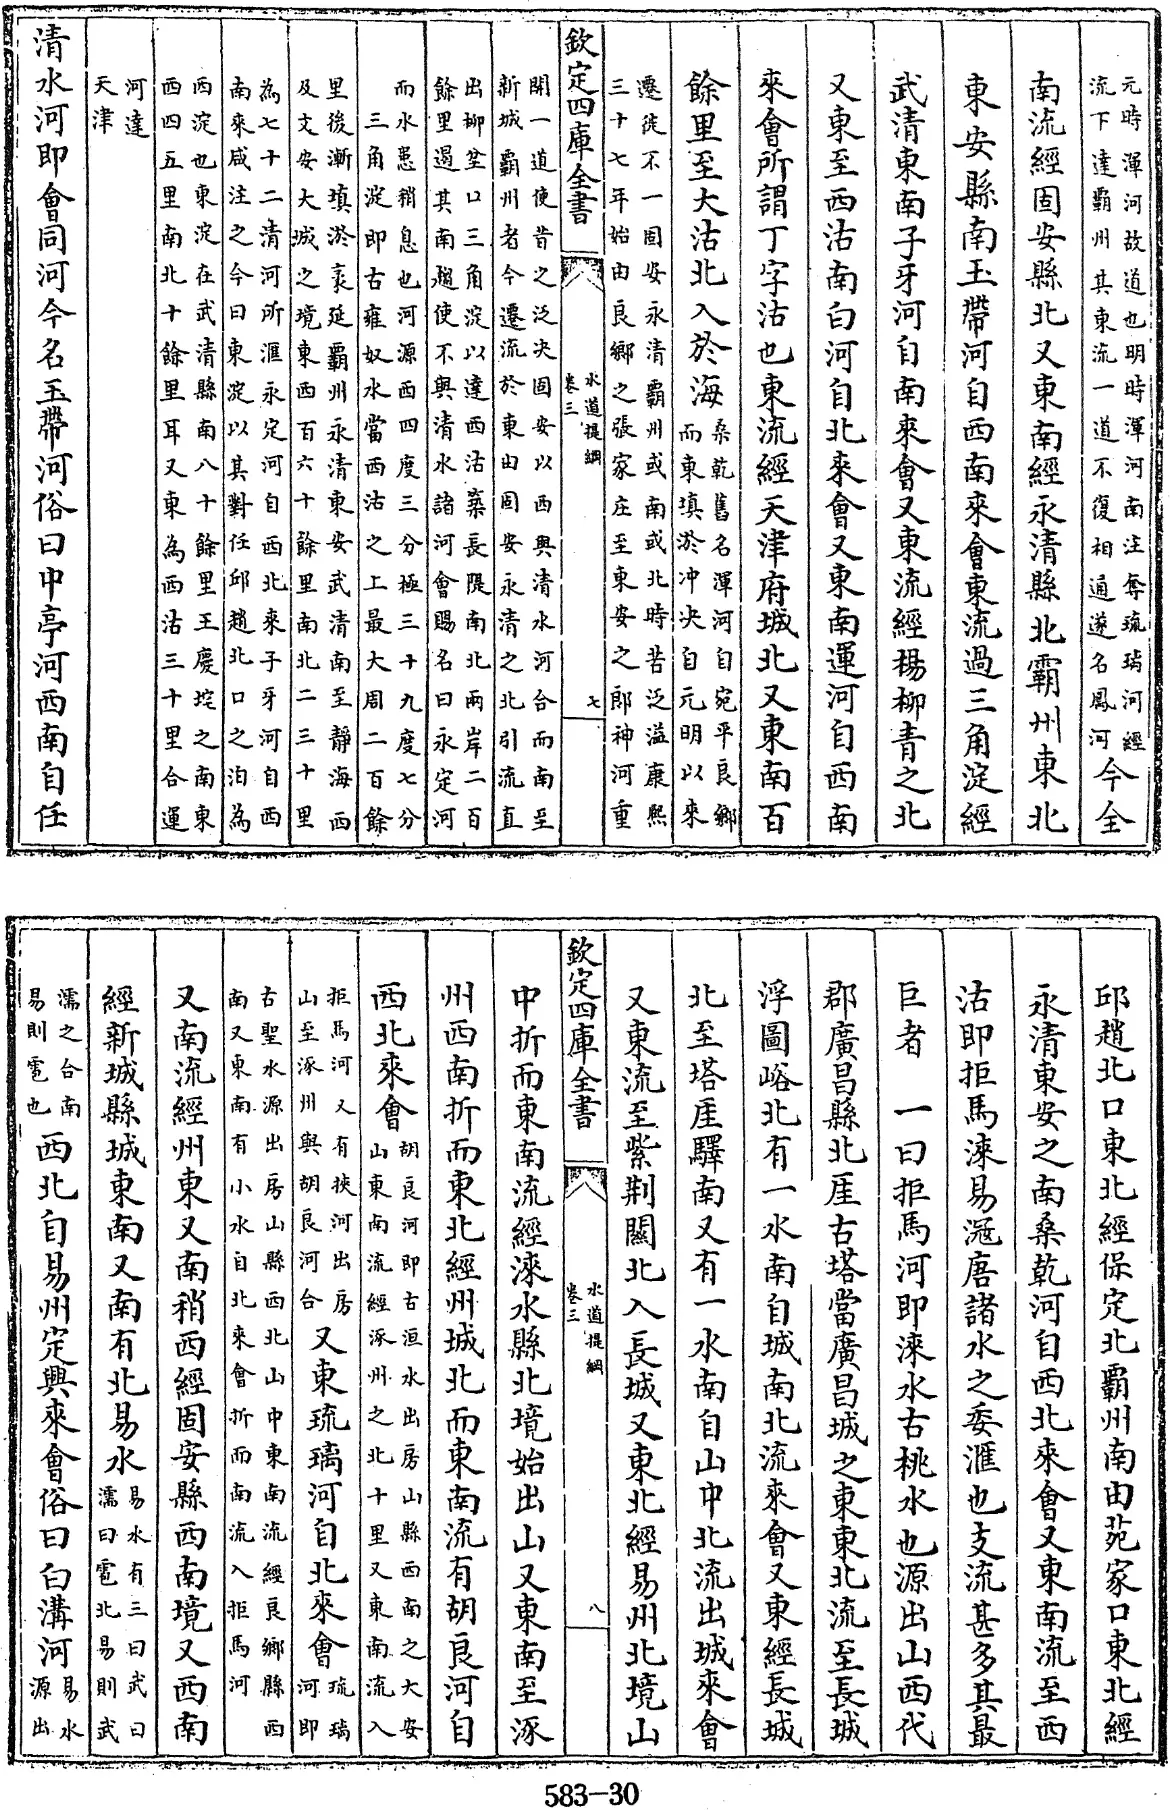 元時渾河故道也明時渾河南注奪琉璃河經
流下達霸州其東流一道不復相通遂名鳳河
今全
南流經固安縣北又東南經永清縣北霸州東北
東安縣南玉帶河自西南來會東流過三角淀經
武清東南子牙河自南來會又東流經楊柳青之北
又東至西沽南白河自北來會又東南運河自西南
來會所謂丁字沽也東流經天津府城北又東南百
餘里至大沽北入於海
桑乾舊名渾河自宛平良鄉
而東填淤冲決自元明以來
遷徙不一固安永清霸州或南或北時苦泛溢康熙
三十七年始由良鄉之張家庄至東安之郎神河重
欽定四庫全書
水道提綱
卷三
七
開一道使昔之泛決固安以西與清水河合而南至
新城霸州者今遷流於東由固安永清之北引流直
出柳岔口三角淀以達西沽築長隄南北兩岸二百
餘里遏其南趨使不與清水諸河會賜名曰永定河
而水患稍息也河源西四度三分極三十九度七分
三角淀即古雍奴水當西沽之上最大周二百餘
里後漸填淤袤延霸州永清東安武清南至靜海西
及文安大城之境東西百六十餘里南北二三十里
為七十二清河所滙永定河自西北來子牙河自西
南來咸注之今曰東淀以其對任邱趙北口之泊為
西淀也東淀在武清縣南八十餘里王慶坨之南東
西四五里南北十餘里耳又東為西沽三十里合運
河達
天津
清水河即會同河今名玉帶河俗曰中亭河西南自任
邱趙北口東北經保定北霸州南由苑家口東北經
永清東安之南桑乾河自西北來會又東南流至西
沽即拒馬淶易滱唐諸水之委滙也支流甚多其最
巨者 一曰拒馬河即淶水古桃水也源出山西代
郡廣昌縣北厓古塔當廣昌城之東東北流至長城
浮圖峪北有一水南自城南北流來會又東經長城
北至塔厓驛南又有一水南自山中北流出城來會
又東流至紫荆關北入長城又東北經易州北境山
欽定四庫全書
水道提綱
卷三
八
中折而東南流經淶水縣北境始出山又東南至涿
州西南折而東北經州城北而東南流有胡良河自
西北來會
胡良河即古洹水出房山縣西南之大安
山東南流經涿州之北十里又東南流入
拒馬河又有挾河出房
山至涿州與胡良河合
又東琉璃河自北來會
琉璃
河即
古聖水源出房山縣西北山中東南流經良鄉縣西
南又東南有小水自北來會折而南流入拒馬河
又南流經州東又南稍西經固安縣西南境又西南
經新城縣城東南又南有北易水
易水有三曰武曰
濡曰雹北易則武
濡之合南
易則雹也
西北自易州定興來會俗曰白溝河
易水
源出
583-30